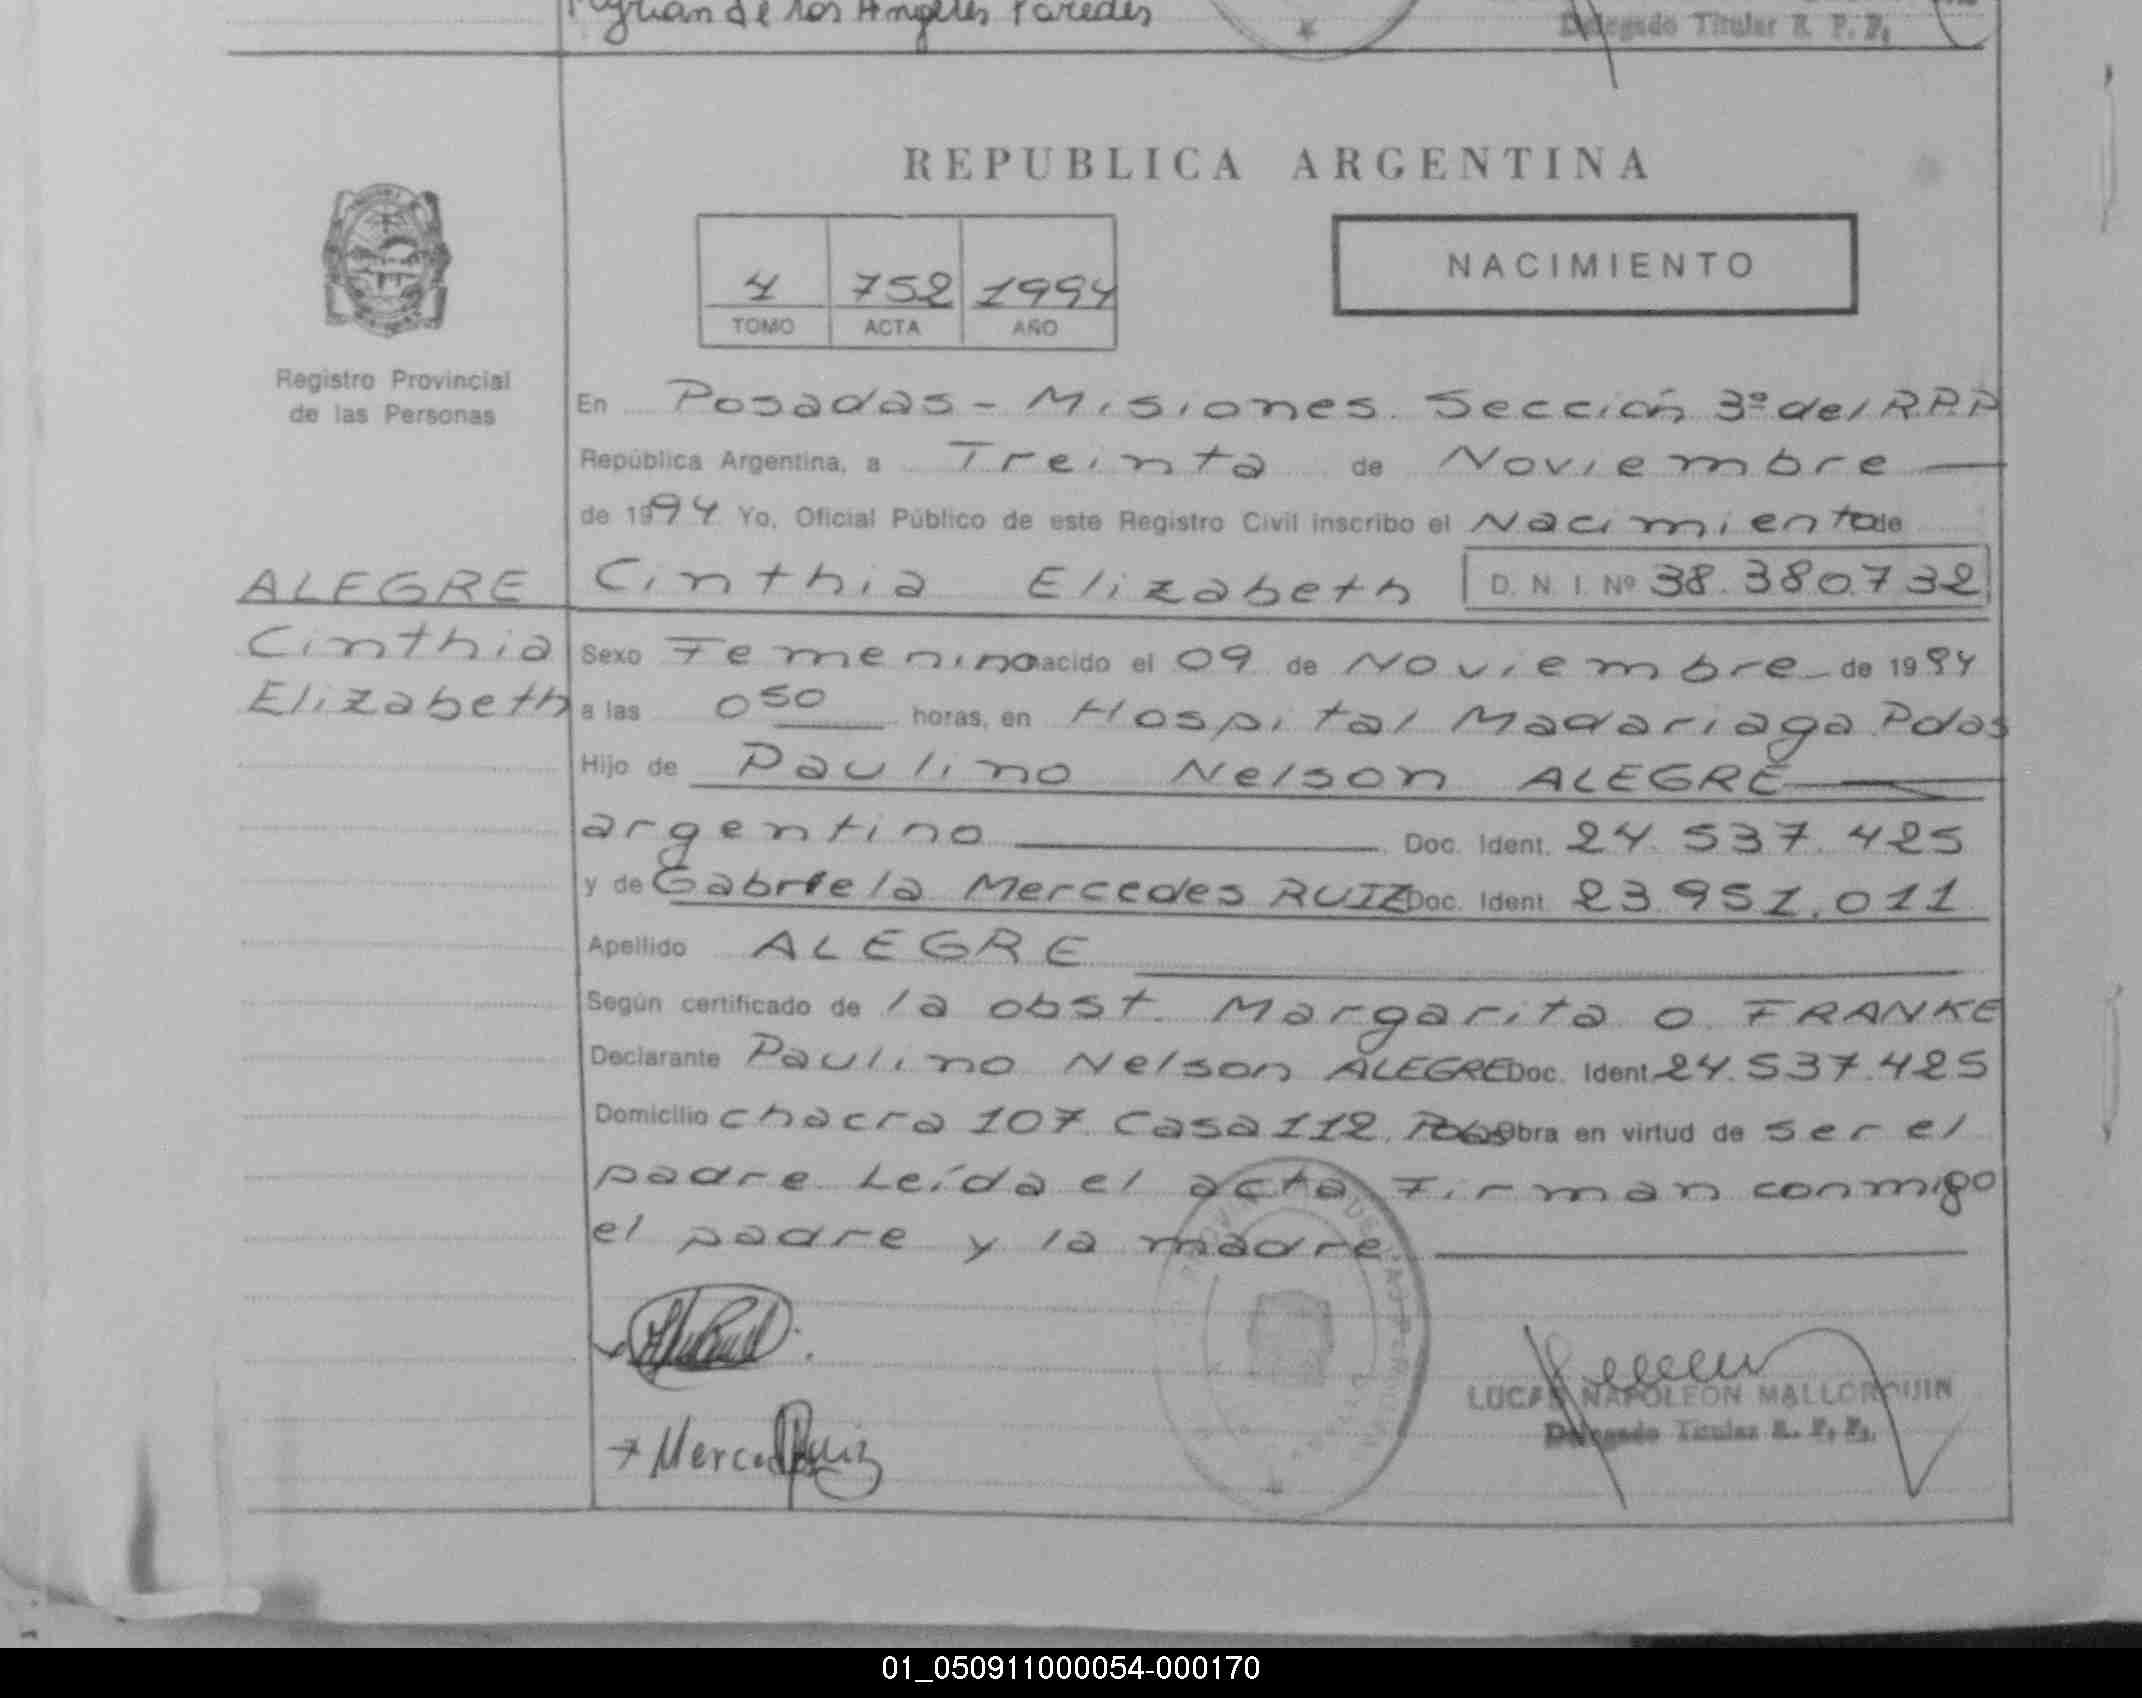 de los Angeles Paredes
Delegado Titular R. P. P.
REPUBLICA ARGENTINA
NACIMIENTO
4 752 1994
TOMO ACTA AÑO
Registro Provincial
de las Personas
En Posadas - Misiones. Sección 3º del R.P.P
República Argentina, a Treinta de Noviembre
de 1994 Yo, Oficial Público de este Registro Civil inscribo el Nacimiento de
ALEGRE Cinthia Elizabeth D. N. I. Nº 38.380.732
Cinthia
Elizabeth
Sexo Femenino nacido el 09 de Noviembre de 1994
a las 0 50 horas, en Hospital Madariaga Pdas
Hijo de Paulino Nelson ALEGRE
argentino Doc. Ident. 24.537.425
y de Gabriela Mercedes RUIZ Doc. Ident. 23.951.011
Apellido ALEGRE
Según certificado de la obst. Margarita O. FRANKE
Declarante Paulino Nelson ALEGRE Doc. Ident. 24.537.425
Domicilio chacra 107 Casa 112, Pdas Obra en virtud de ser el
padre Leída el acta Firman conmigo
el padre y la madre
Merced Ruiz
LUCAS NAPOLEON MALLORQUIN
Delegado Titular R. P. P.
01_050911000054-000170